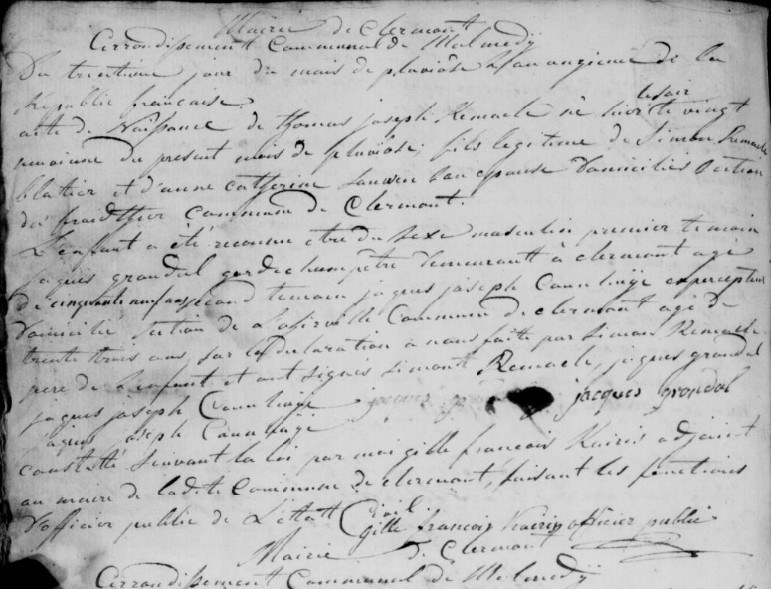 Mairie de Clermont
Cerrondissement Communal de Malmedÿ
Du trentieme jour du mois de pluviôse l'an onzieme de la
Republic francaise.
acte de Naissance de thomas joseph Remacle né hier le soir le vingt
neuvieme du present mois de pluviôse, fils legitime de Simon Remacle
et d'anne catherine son epouse domiciliés Section
de froidthier Commune de Clermont.
L'enfant a été reconnu etre du sexe masculin premier temoin
jaques grandal garde champêtre demeurant à clermont agé
de cinquante neuf ans second temoin jaques joseph expercepteur
domicilié Section de Commune de clermont agé de
trente trois ans, sur la declaration à nous faite par Simon Remacle
pere de l'enfant et ont signés Simont Remacle, jaques grandal
jaques joseph
jacques grondal
jaques joseph
constaté suivant la loi par moi gille francois adjoint
au maire de ladite Commune de clermont, faisant les fonctions
d'officier public de L'etatt Civil.
gille francois officier public
Mairie de Clermont
Cerrondissement Communal de Malmedÿ